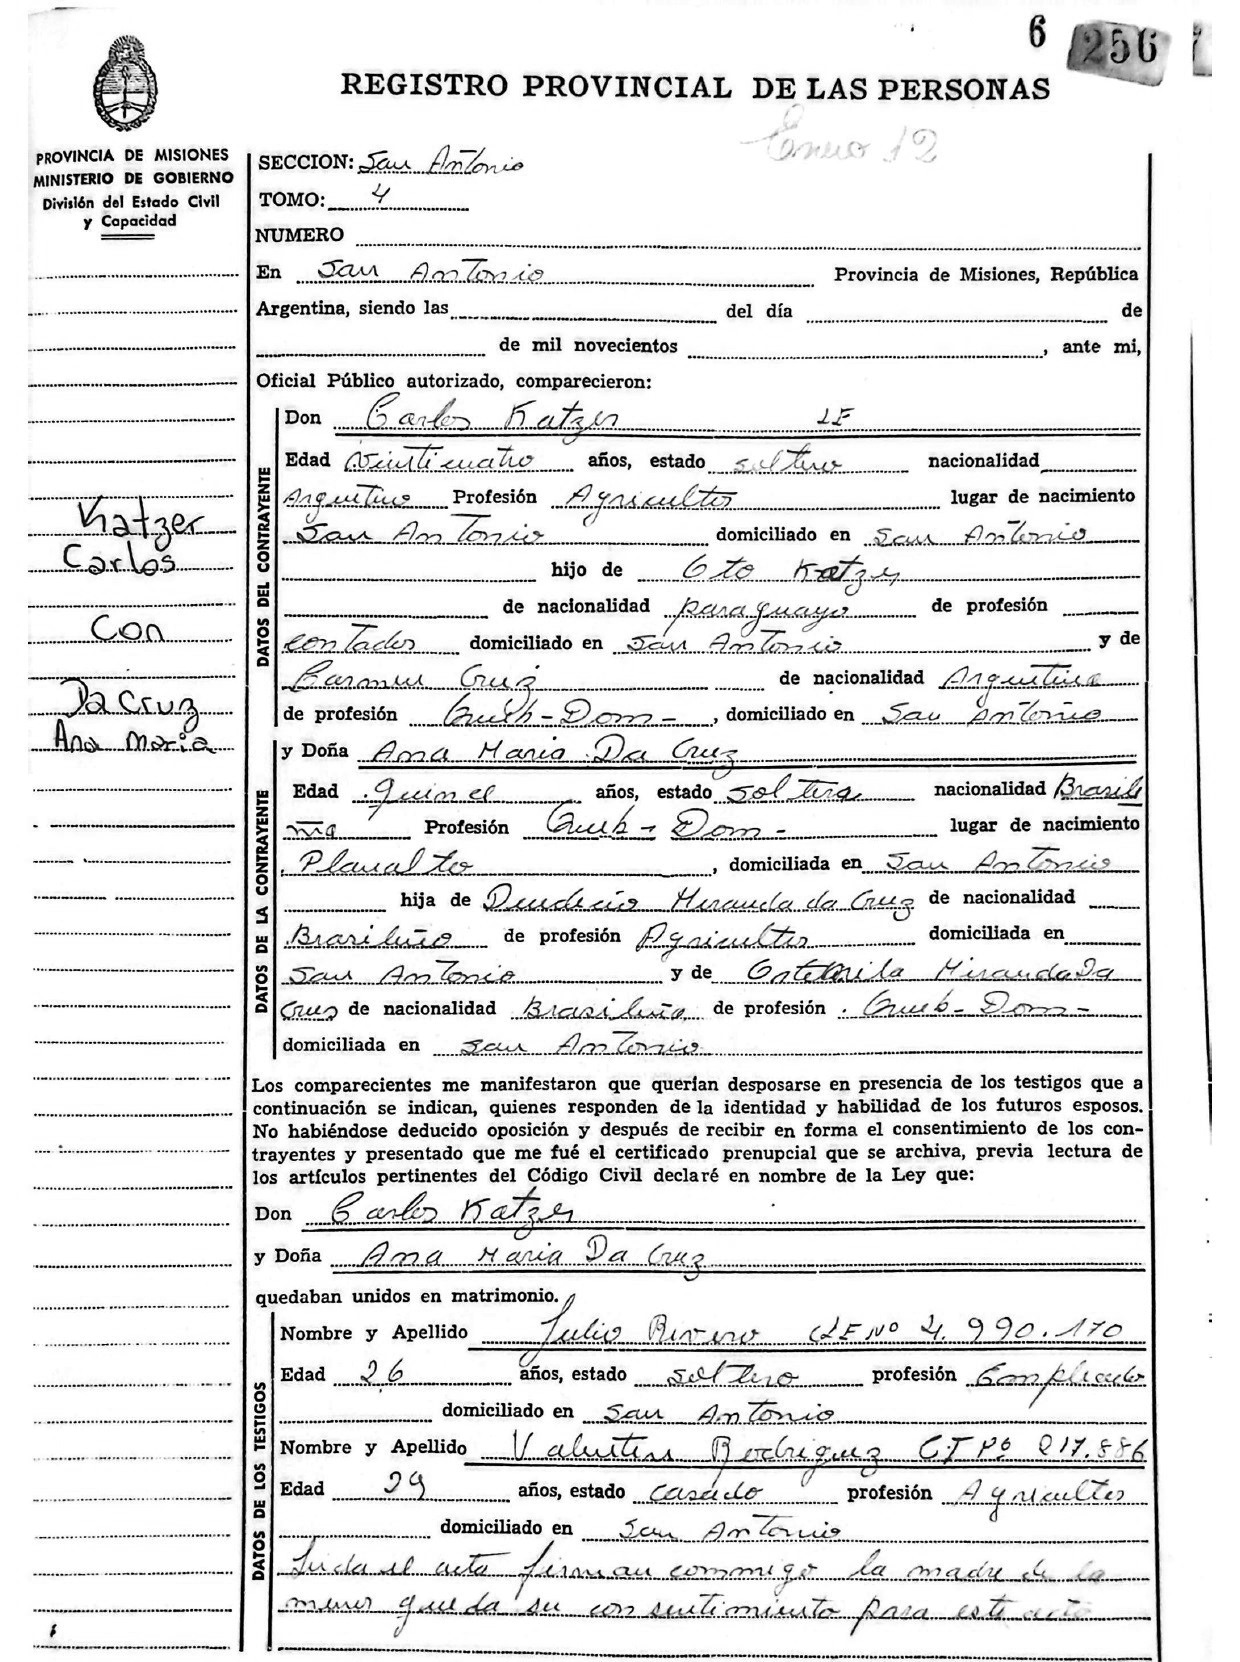 6 256
REGISTRO PROVINCIAL DE LAS PERSONAS
Enero 12
PROVINCIA DE MISIONES
MINISTERIO DE GOBIERNO
División del Estado Civil
y Capacidad
SECCION: San Antonio
TOMO: 4
NUMERO
En San Antonio Provincia de Misiones, República
Argentina, siendo las del día de
de mil novecientos , ante mi,
Oficial Público autorizado, comparecieron:
DATOS DEL CONTRAYENTE
Don Carlos Katzer LE
Edad Veinticuatro años, estado soltero nacionalidad
Argentino Profesión Agricultor lugar de nacimiento
San Antonio domiciliado en San Antonio
hijo de Oto Katzer
de nacionalidad paraguayo de profesión
contador domiciliado en San Antonio y de
Carmen Cruz de nacionalidad Argentina
de profesión Queh-Dom- , domiciliado en San Antonio
Katzer
Carlos
Con
Da Cruz
Ana Maria
DATOS DE LA CONTRAYENTE
y Doña Ana Maria Da Cruz
Edad Quince años, estado soltera nacionalidad Brasile
ña Profesión Queh-Dom- lugar de nacimiento
Planalto , domiciliada en San Antonio
hija de Miranda da Cruz de nacionalidad
Brasileño de profesión Agricultor domiciliada en
San Antonio y de Miranda Da
Cruz de nacionalidad Brasileña de profesión Queh-Dom-
domiciliada en San Antonio
Los comparecientes me manifestaron que querían desposarse en presencia de los testigos que a
continuación se indican, quienes responden de la identidad y habilidad de los futuros esposos.
No habiéndose deducido oposición y después de recibir en forma el consentimiento de los con-
trayentes y presentado que me fué el certificado prenupcial que se archiva, previa lectura de
los artículos pertinentes del Código Civil declaré en nombre de la Ley que:
Don Carlos Katzer
y Doña Ana Maria Da Cruz
quedaban unidos en matrimonio.
DATOS DE LOS TESTIGOS
Nombre y Apellido Julio Rivero LE Nº 4.990.170
Edad 26 años, estado soltero profesión Empleado
domiciliado en San Antonio
Nombre y Apellido Valentin Rodriguez CI Pº 217.886
Edad 29 años, estado casado profesión Agricultor
domiciliado en San Antonio
Leida el acta firman conmigo la madre de la
menor queda su consentimiento para este acto